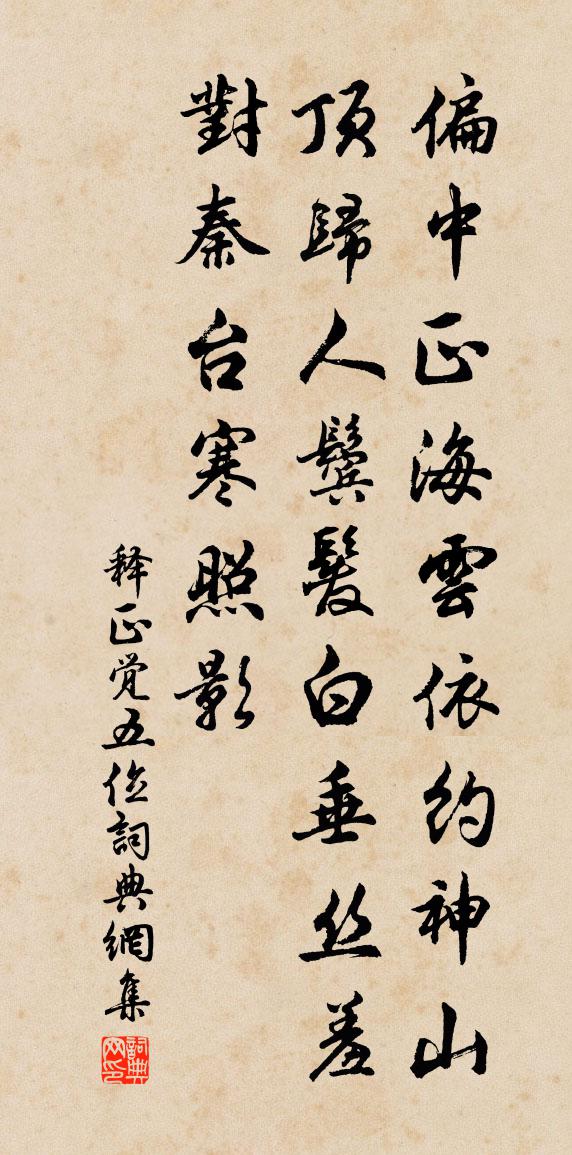 偏中正海雲依約神山
頂歸人鬢髮白垂丝羞
對秦台寒照影
释正觉五位詞典網集
詞典网印